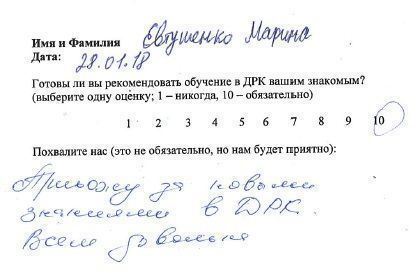 Имя и Фамилия Евтушенко Марина
Дата: 28.01.18
Готовы ли вы рекомендовать обучение в ДРК вашим знакомым?
(выберите одну оценку; 1 – никогда, 10 – обязательно)
1 2 3 4 5 6 7 8 9 10
Похвалите нас (это не обязательно, но нам будет приятно):
Прихожу за новыми
знаниями в ДРК.
Всем довольна